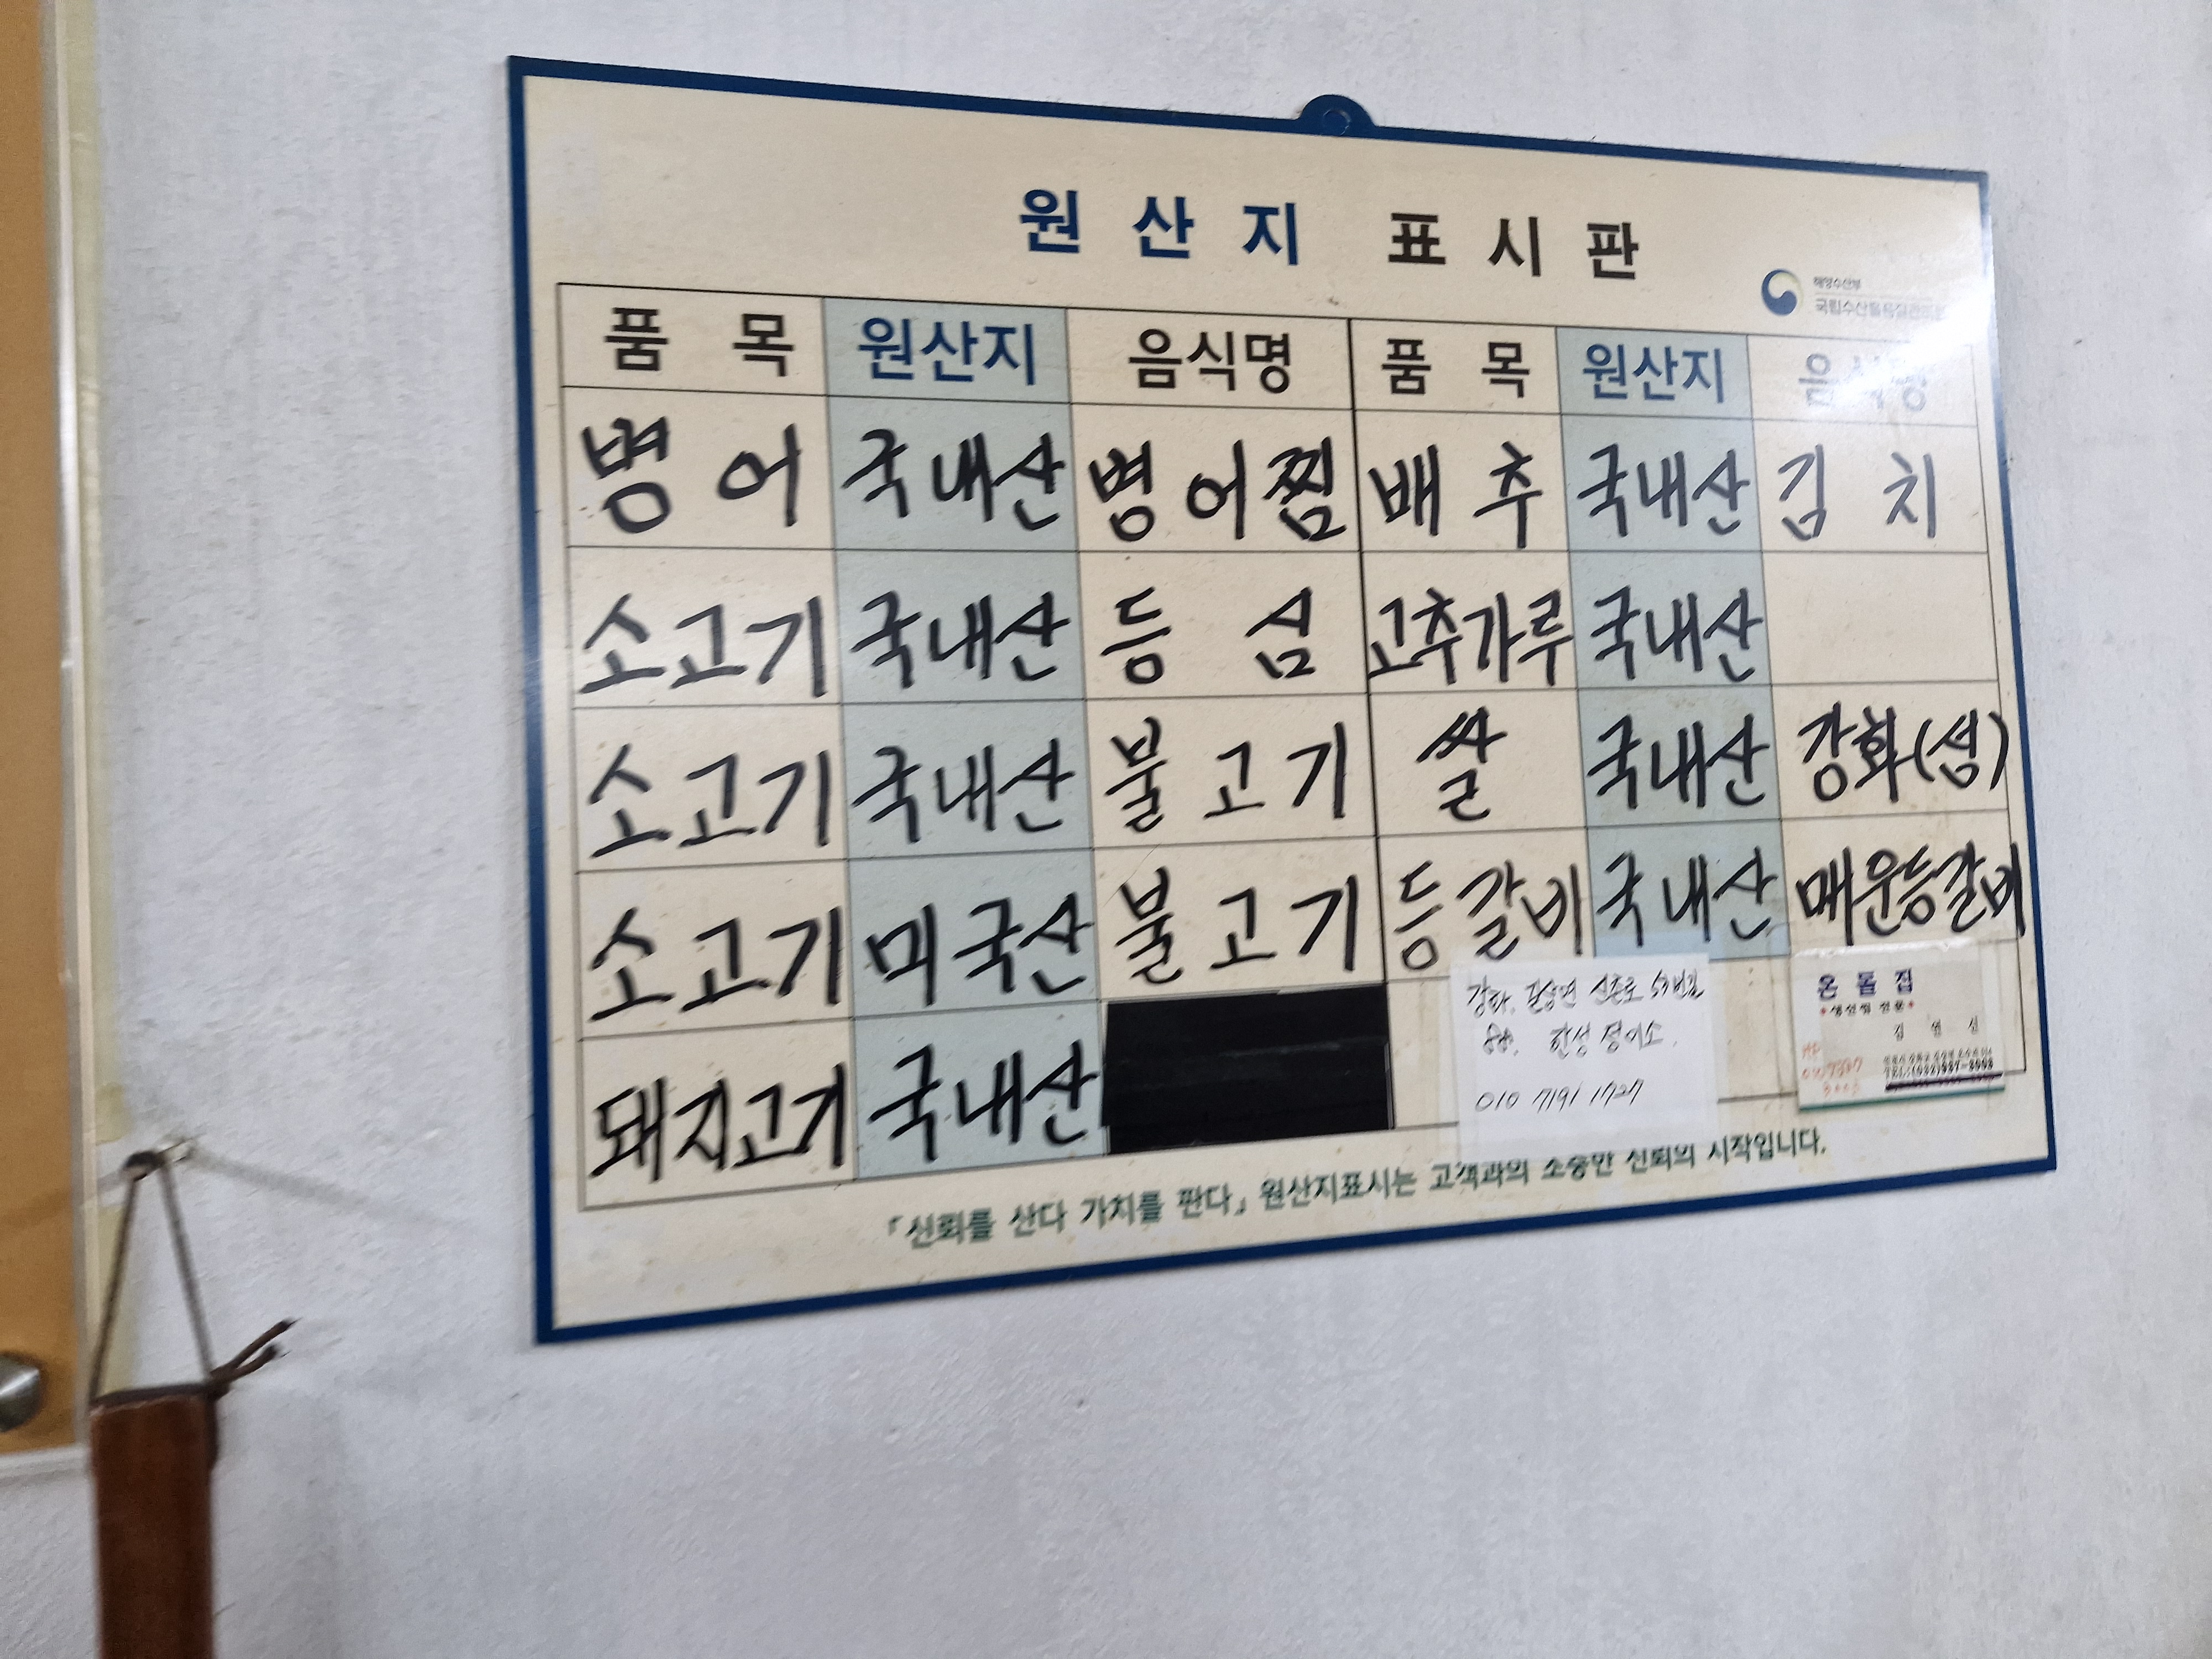 원산지 표시판
해양수산부
국립수산물품질관리원
품목 원산지 음식명 품목 원산지 음식명
병어 국내산 병어찜 배추 국내산 김치
소고기 국내산 등심 고추가루 국내산
소고기 국내산 불고기 쌀 국내산 강화(섬)
소고기 미국산 불고기 등갈비 국내산 매운등갈비
돼지고기 국내산
강화. 길상면
한성
010 7191 1727
온돌집
김
「신뢰를 산다 가치를 판다」 원산지표시는 고객과의 소중한 신뢰의 시작입니다.